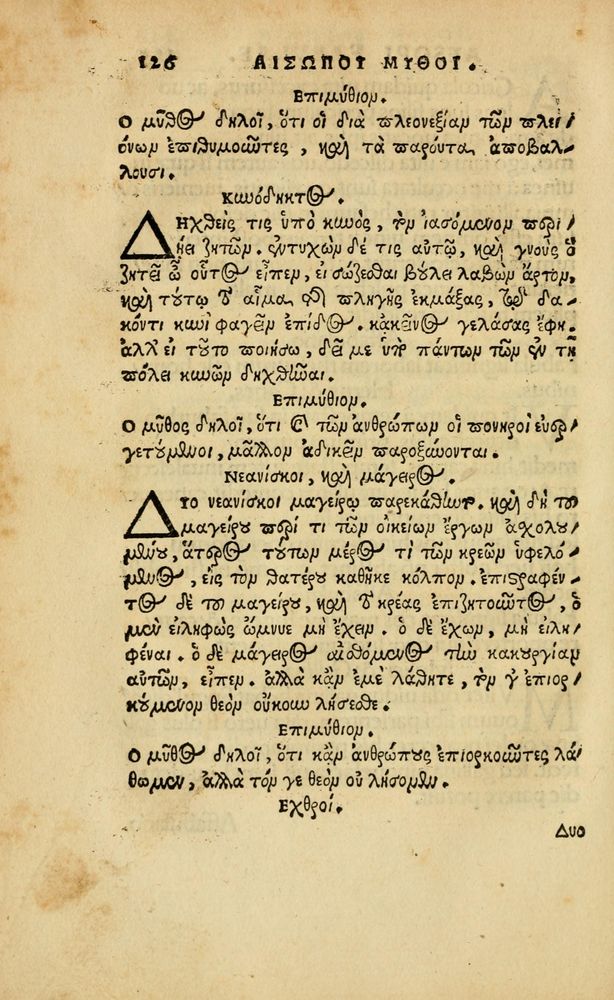 126 ΑΙΣΩΠΟΥ ΜΥΘΟΙ.
Επιμύθιον.
Ο μῦθος δηλοῖ, ὅτι οἱ διὰ πλεονεξίαν τῶν πλει-
όνων ἐπιθυμοῦντες, καὶ τὰ παρόντα ἀποβάλ-
λουσι.
Κυνόδηκτος.
ΔΗχθείς τις ὑπὸ κυνὸς, τὸν ἰασόμενον περιῄ-
ει ζητῶν. ἐντυχὼν δέ τις αὐτῷ, καὶ γνοὺς ὃ
ζητεῖ ὦ οὗτος εἶπεν, εἰ σώζεσθαι βούλει λαβὼν ἄρτον,
καὶ τούτῳ τὸ αἷμα τῆς πληγῆς ἐκμάξας, τῷ δα-
κόντι κυνὶ φαγεῖν ἐπίδος. κἀκεῖνος γελάσας ἔφη.
ἀλλ' εἰ τοῦτο ποιήσω, δεῖ με ὑπὸ πάντων τῶν ἐν τῇ
πόλει κυνῶν δηχθῆναι.
Επιμύθιον.
Ο μῦθος δηλοῖ, ὅτι καὶ τῶν ἀνθρώπων οἱ πονηροὶ εὐερ-
γετούμενοι, μᾶλλον ἀδικεῖν παροξύνονται.
Νεανίσκοι, καὶ μάγειρος.
ΔΥο νεανίσκοι μαγείρῳ παρεκάθηντο. καὶ δὴ τοῦ
μαγείρου περί τι τῶν οἰκείων ἔργων ἀσχολου-
μένου, ἅτερος τούτων μέρος τὶ τῶν κρεῶν ὑφελό-
μενος, εἰς τὸν θατέρου καθῆκε κόλπον. ἐπιστραφέν-
τος δὲ τοῦ μαγείρου, καὶ τὸ κρέας ἐπιζητοῦντος, ὁ
μὲν εἰληφὼς ὤμνυε μὴ ἔχειν. ὁ δὲ ἔχων, μὴ εἰλη-
φέναι. ὁ δὲ μάγειρος αἰσθόμενος τὴν κακουργίαν
αὐτῶν, εἶπεν. ἀλλὰ κἂν ἐμὲ λάθητε, τόν γ' ἐπιορ-
κούμενον θεὸν οὔκουν λήσεσθε.
Επιμύθιον.
Ο μῦθος δηλοῖ, ὅτι κἂν ἀνθρώπους ἐπιορκοῦντες λά-
θωμεν, ἀλλὰ τόν γε θεὸν οὐ λήσομεν.
Εχθροί.
Δυο